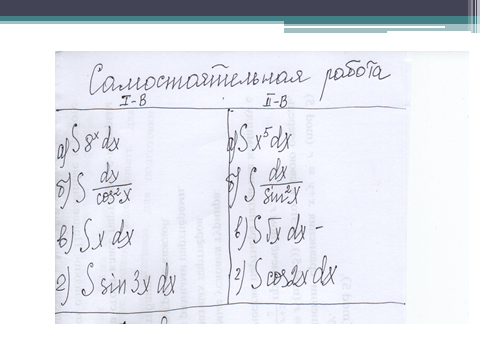 Самостоятельная работа
I-В
II-В
а) ∫ 8^x dx
б) ∫ dx/cos²x
в) ∫ x dx
г) ∫ sin 3x dx
а) ∫ x⁵ dx
б) ∫ dx/sin²x
в) ∫ √x dx -
г) ∫ cos 2x dx